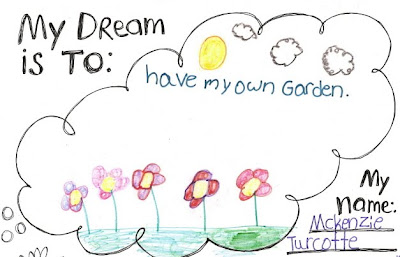 My Dream
is To:
have my own Garden.
My
Name:
Mckenzie
Turcotte